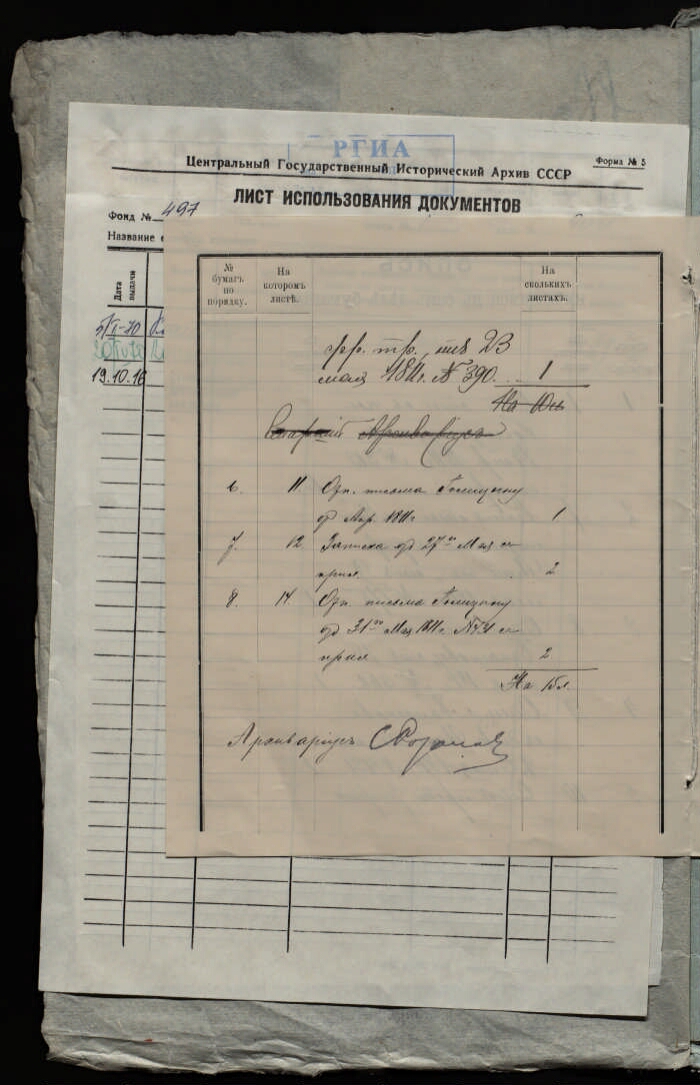 РГИА
Центральный Государственный Исторический Архив СССР
Форма № 5
ЛИСТ ИСПОЛЬЗОВАНИЯ ДОКУМЕНТОВ
Фонд № 497
Название
Дата выдачи
19.10.16
№ бумагъ по порядку.
На которомъ листѣ.
На сколькихъ листахъ.
23
мая 1811г. № 390. 1
На
Старший Архиваріусъ
6. 11. Ор. письма Голицыну
од Апр. 1811г 1
7. 12. Записка од 27го Мая съ
прил. 2
8. 14. Ор. письма Голицыну
од 31го Мая 1811г. съ
прил 2
На 15л.
Архиваріусъ